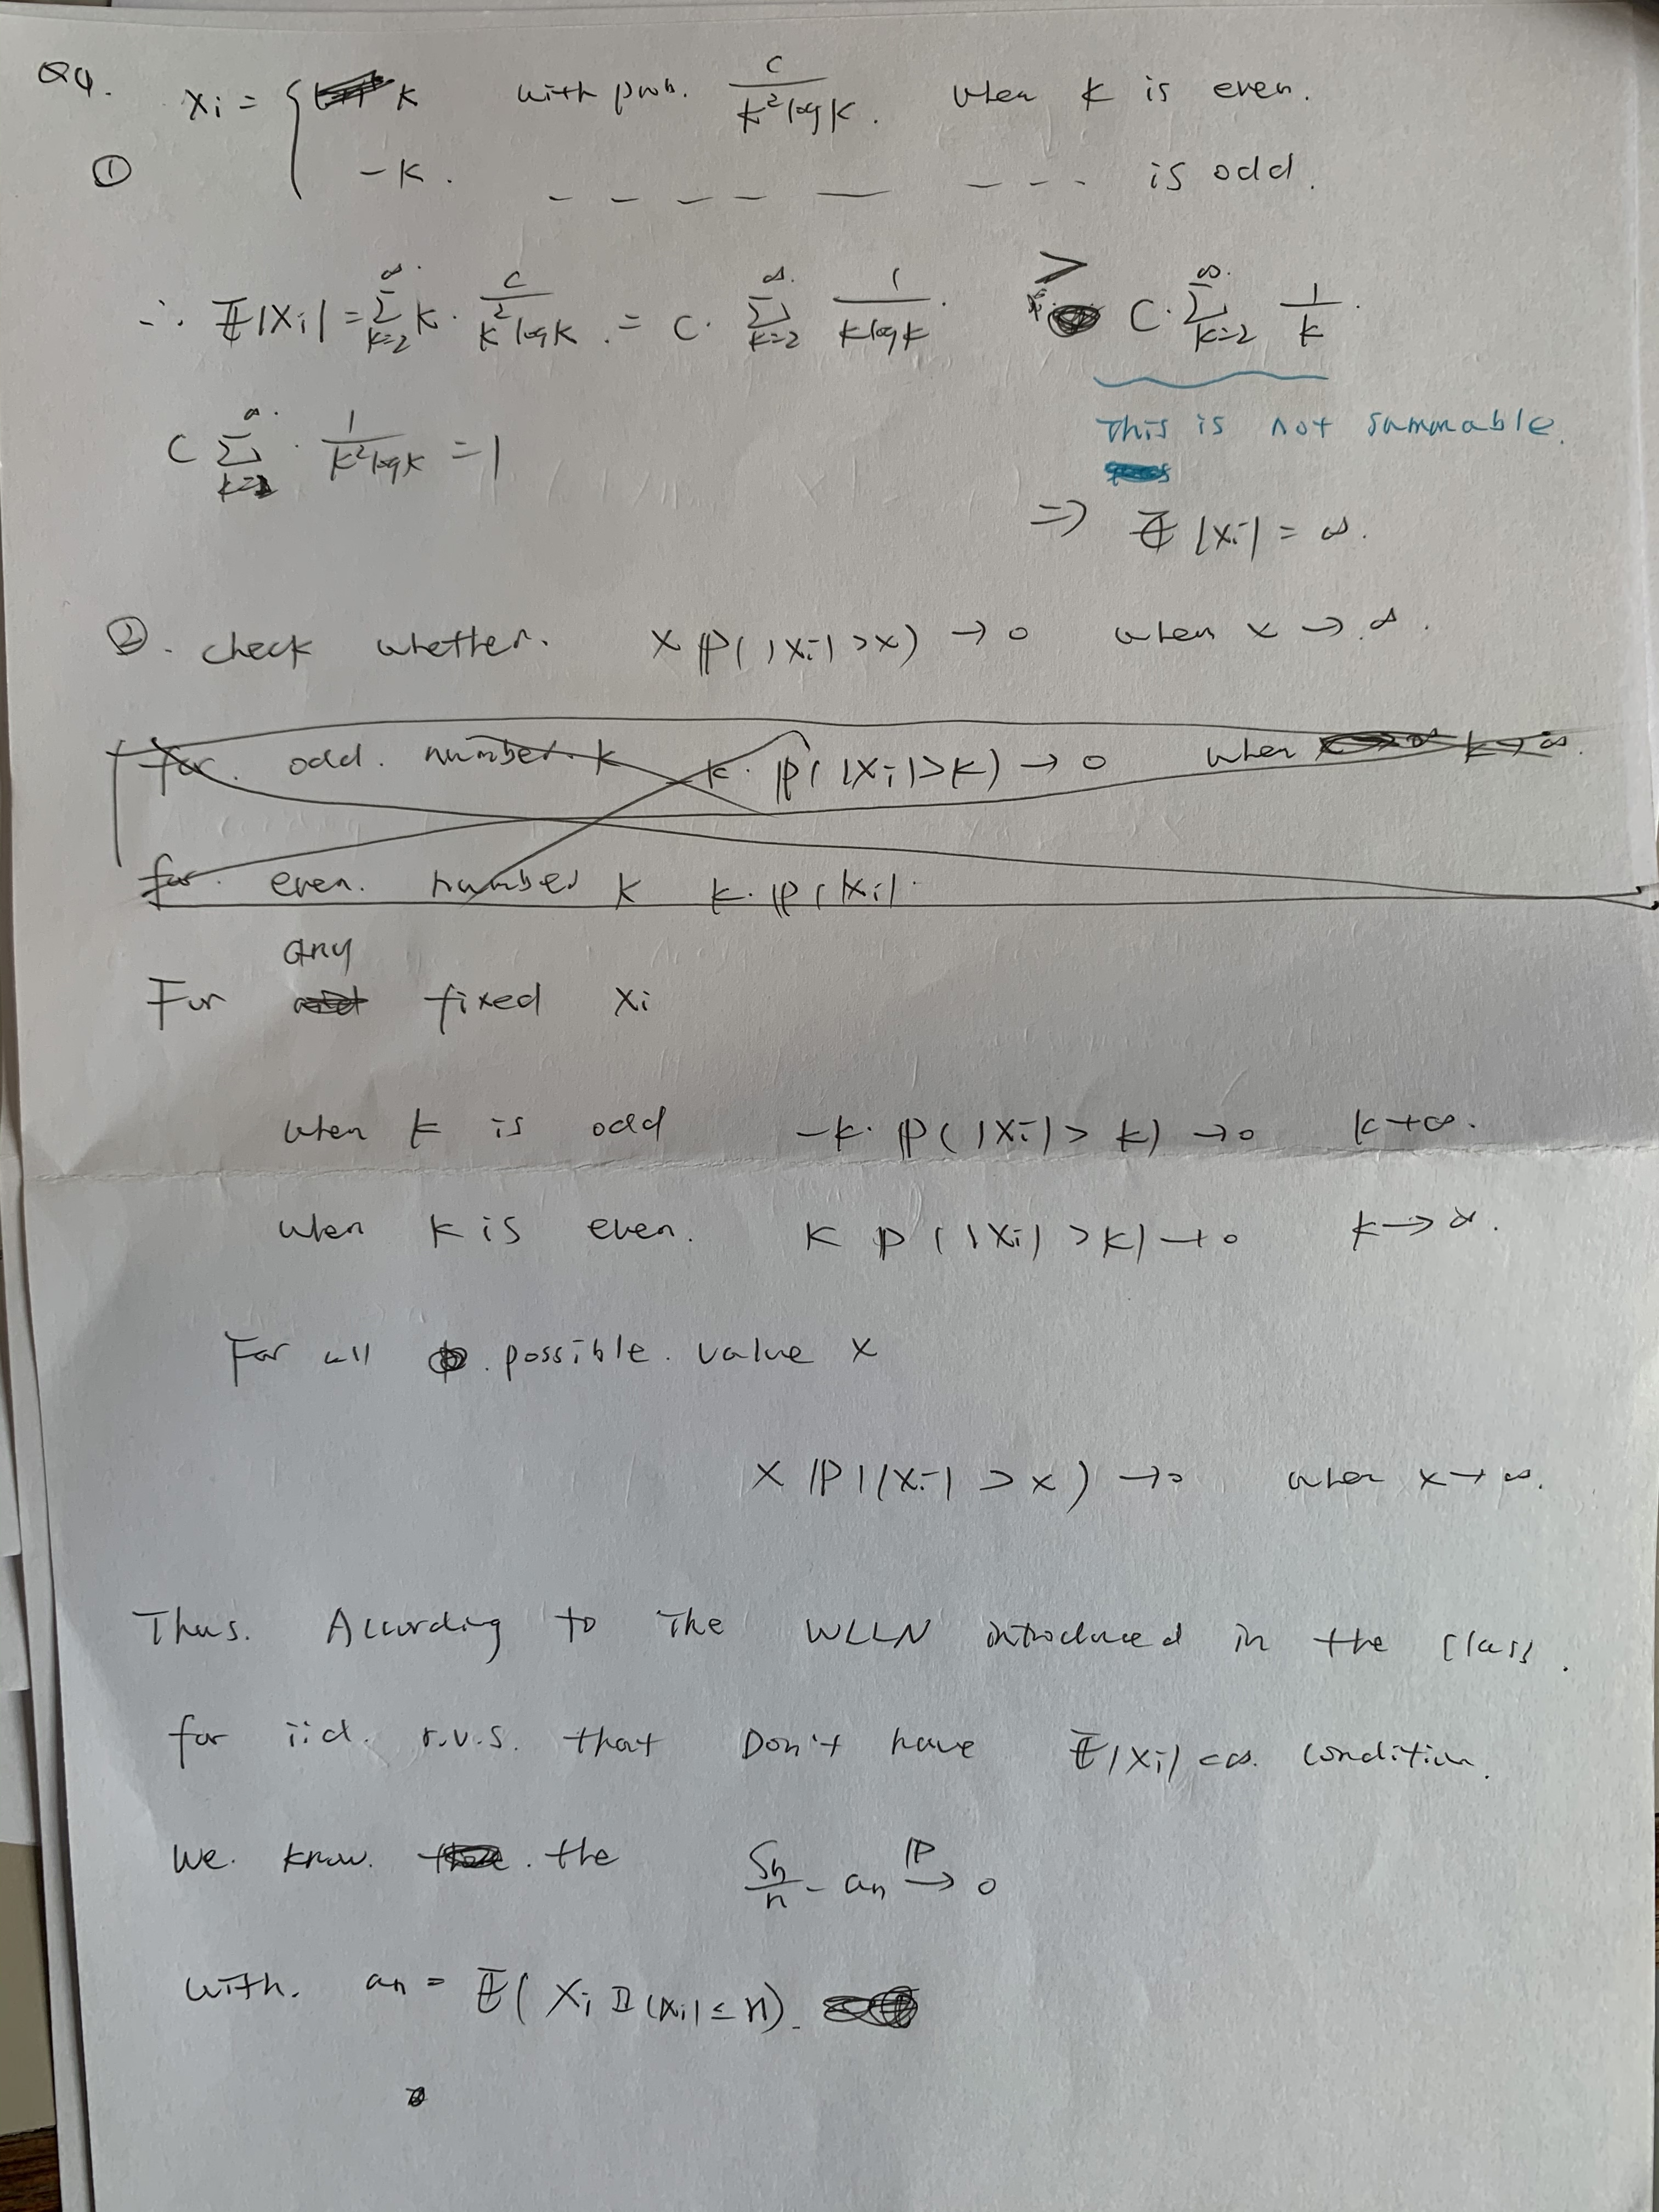 Q4. Xi = { K with prob. C / K² log K . when K is even.
① -K . – – – – — – – – is odd.
∴ E|Xi| = ∑_{k=2}^∞ K · C / K² log K . = C · ∑_{k=2}^∞ 1 / K log K . > C · ∑_{k=2}^∞ 1 / K .
This is not summable.
C ∑_{k=2}^∞ · 1 / K² log K = 1
⇒ E |Xi| = ∞ .
② . check whether . x P( |Xi| > x) → 0 when x → ∞ .
for . odd . number . k k · P( |Xi| > k) → 0 when k → ∞ .
for . even . number K K · P( |Xi| .
any
For fixed Xi
when K is odd -K · P( |Xi| > k) → 0 k → ∞ .
when K is even . K P( |Xi| > K) → 0 k → ∞ .
For all . possible . value x
x P( |Xi| > x) → 0 when x → ∞ .
Thus. According to The WLLN introduced in the class .
for i.i.d. r.v.s. that Don't have E|Xi| < ∞ . condition .
We . know . the Sn / n - an →^P 0
with . an = E( Xi 𝟙 |Xi| ≤ n) .